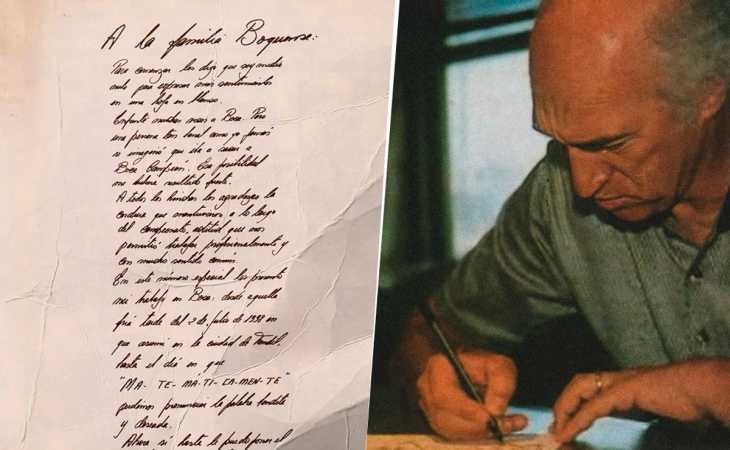 A la familia Boquense:
Para comenzar les digo que soy medio
malo para expresar mis sentimientos
en una hoja en blanco.
Enfrenté muchas veces a Boca. Pero
una persona tan banal como yo jamás
se imaginó que iba a sacar a
Boca Campeón. Esa posibilidad
me hubiera resultado
A todos los hinchas les agradezco la
conducta que mantuvieron a lo largo
del campeonato, actitud que nos
permitió trabajar profesionalmente y
con mucho sentido común.
En este número especial les presento
mi trabajo en Boca: desde aquella
fría tarde del 2 de Julio de 1998 en
que asumí en la ciudad de Tandil,
hasta el día en que
"MA-TE-MA-TI-CA-MEN-TE"
pudimos pronunciar la palabra bendita
y deseada.
Ahora sí hasta le puedo poner el